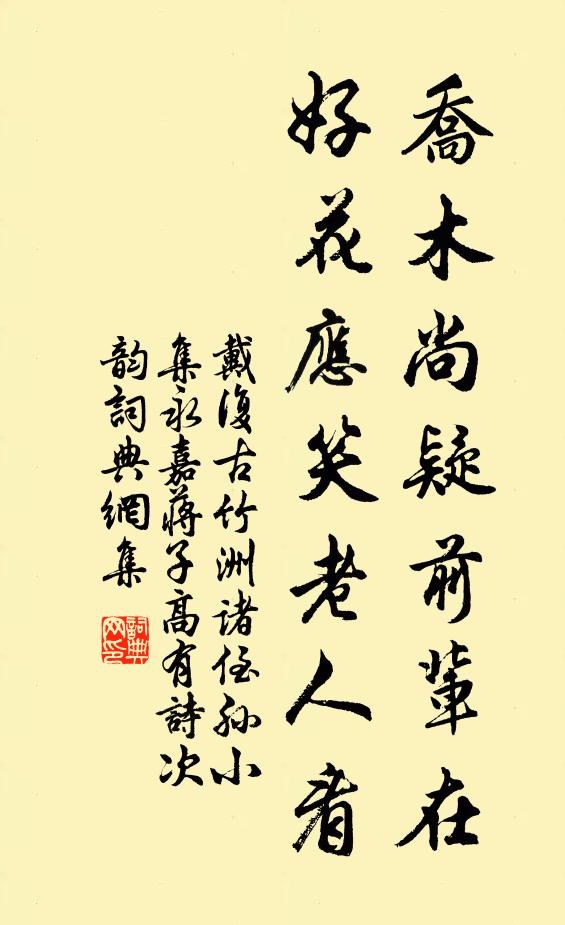 喬木尚疑前輩在
好花應笑老人看
戴復古竹洲諸侄孫小
集永嘉蔣子高有詩次
韵詞典網集
詞典
网印